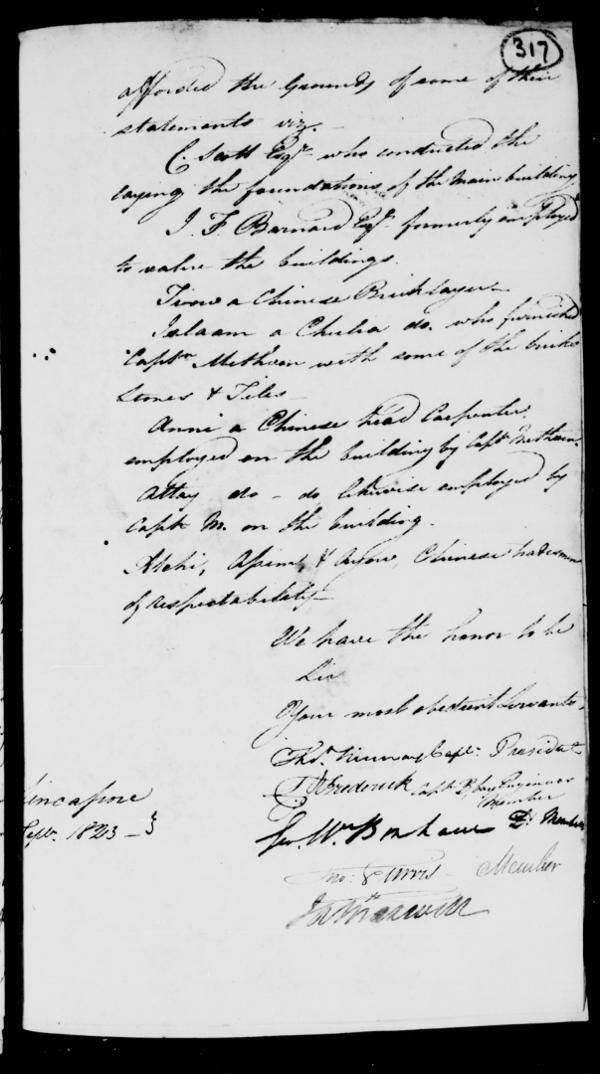 317
afforded the Grounds of some of their
statements viz.
C. Scott Esqr. who conducted the
laying the foundations of the Main building
I. F Barnard Esqr. formerly employed
to value the buildings.
a Chinese Bricklayer
a Chulia do. who furnished
Captn Methven with some of the bricks
Stones & Tiles
a Chinese head Carpenter
employed on the building by Captn Methven
Attay do - do likewise employed by
Captn M. on the building.
& Chinese tradesmen
of respectability
We have the honor to be
Sir
Your most obedient Servants
Thos. Murray Captn. President
Frederick Captn Engineer
Member
Geo. Wm Bonham Do Member
Member
Singapore
Septr. 1823